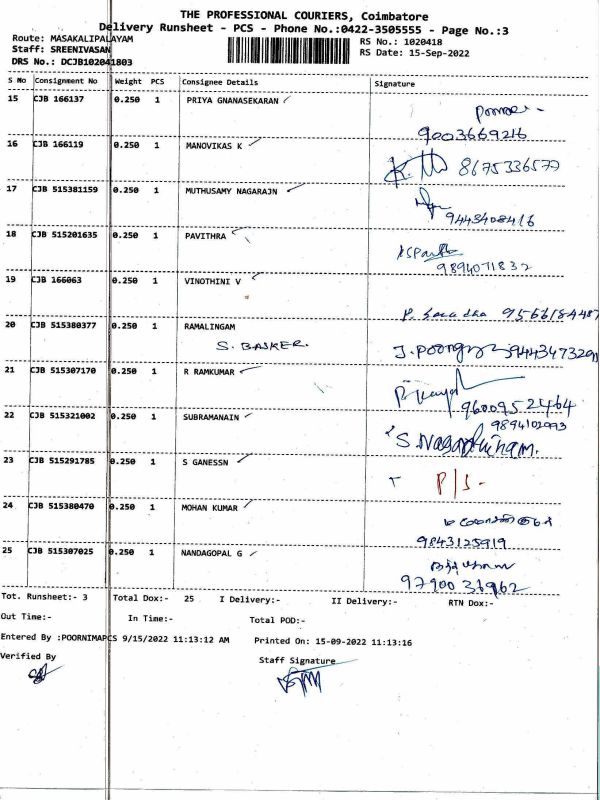 THE PROFESSIONAL COURIERS, Coimbatore
Delivery Runsheet - PCS - Phone No.:0422-3505555 - Page No.:3
Route: MASAKALIPALAYAM
Staff: SREENIVASAN
DRS No.: DCJB102041803
RS No.: 1020418
RS Date: 15-Sep-2022
S No Consignment No Weight PCS Consignee Details Signature
15 CJB 166137 0.250 1 PRIYA GNANASEKARAN
9003669216
16 CJB 166119 0.250 1 MANOVIKAS K
8675336577
17 CJB 515381159 0.250 1 MUTHUSAMY NAGARAJN
9443408416
18 CJB 515201635 0.250 1 PAVITHRA
9894071832
19 CJB 166063 0.250 1 VINOTHINI V
9566184487
20 CJB 515380377 0.250 1 RAMALINGAM
S. BASKER
21 CJB 515307170 0.250 1 R RAMKUMAR
9600952464
22 CJB 515321002 0.250 1 SUBRAMANAIN
23 CJB 515291785 0.250 1 S GANESSN
24 CJB 515380470 0.250 1 MOHAN KUMAR
9843125919
25 CJB 515307025 0.250 1 NANDAGOPAL G
Tot. Runsheet:- 3 Total Dox:- 25 I Delivery:- II Delivery:- RTN Dox:-
Out Time:- In Time:- Total POD:-
Entered By :POORNIMAPCS 9/15/2022 11:13:12 AM Printed On: 15-09-2022 11:13:16
Verified By Staff Signature